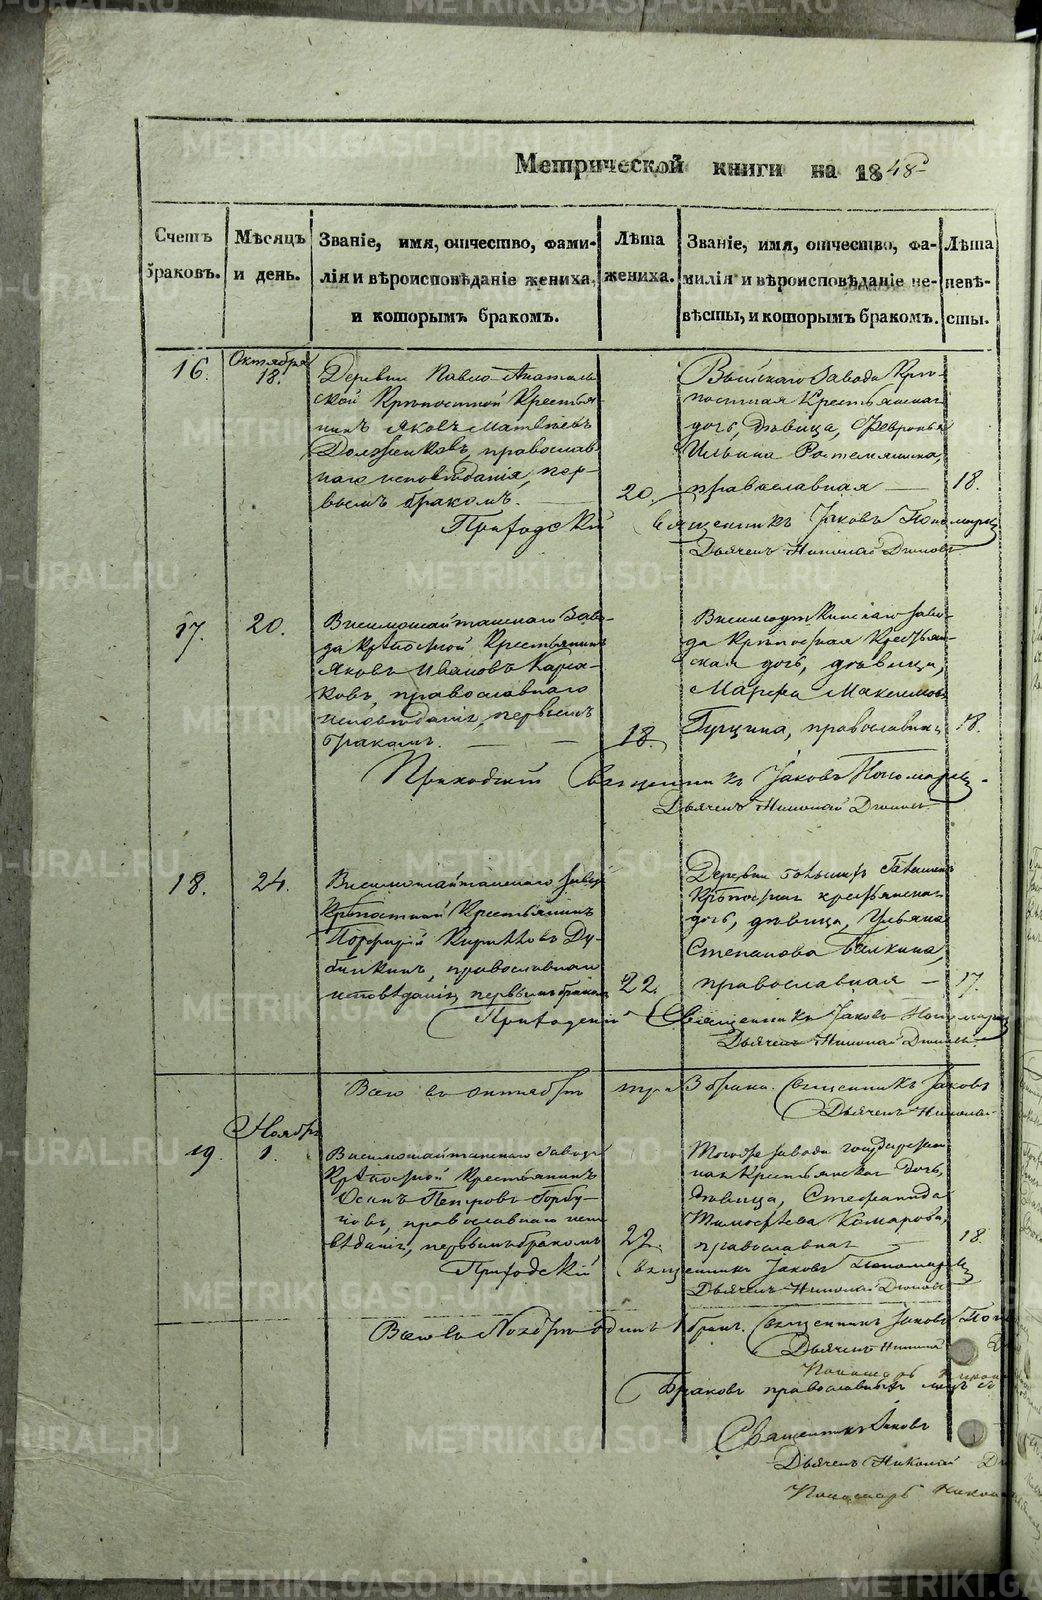 METRIKI.GASO-URAL.RU
Метрической книги на 1848
Счетъ браковъ.
Мѣсяцъ и день.
Званіе, имя, отчество, фами-
лія и вѣроисповѣданіе жениха,
и которымъ бракомъ.
Лѣта
жениха.
Званіе, имя, отчество, фа-
милія и вѣроисповѣданіе не-
вѣсты, и которымъ бракомъ.
Лѣта
невѣ-
сты.
16.
Октября
18.
Деревни Павло-Анатоль
ской Крѣпостной Крестья
нинъ Яковъ Матвѣевъ
Долженковъ, православ
наго исповѣданія, пер-
вымъ бракомъ.
20.
Выйскаго завода Крѣ-
постная Крестьянская
дочь, дѣвица, Февронья
Ильина
православная
18.
Приходскій Священникъ Іаковъ Пономарев
Дьячекъ Николай
17.
20.
Висимошайтанскаго Заво-
да крѣпостной Крестьянинъ
Яковъ Ивановъ
ковъ, православнаго
исповѣданія, первымъ
бракомъ.
18.
Висимоуткинскаго заво-
да Крѣпостная Крестьян-
ская дочь, дѣвица,
Марфа Максимова
православная
18.
Приходскій Священникъ Іаковъ Пономарев
Дьячекъ Николай
18.
24.
Висимошайтанскаго завод
Крѣпостной Крестьянинъ
Порфирій Кириловъ Ду-
бинкинъ, православнаго
исповѣданія, первымъ бракомъ
22.
Деревни
Крѣпостная крестьянская
дочь, дѣвица, Ульяна
Степанова Балкина,
православная
17.
Приходскій Священникъ Іаковъ Пономарев
Дьячекъ Николай
Всего въ октябрѣ три 3 брака. Священникъ Іаковъ
Дьячекъ Николай
Ноября
19.
1.
Висимошайтанскаго завода
Крѣпостной Крестьянинъ
Осипъ Петровъ Горбу-
новъ, православнаго испо
вѣданія, первымъ бракомъ
22.
Тогоже завода государствен
ная Крестьянская дочь,
дѣвица, Стефанида
Тимофѣева Комарова,
православная
18.
Приходскій Священникъ Іаковъ Пономарев
Дьячекъ Николай
Всего въ Ноябрѣ одинъ 1 бракъ. Священникъ Іаковъ Поно
Дьячекъ Николай
Пономарь
Браковъ православныхъ лицъ
Священникъ Іаковъ
Дьячекъ Николай
Пономарь